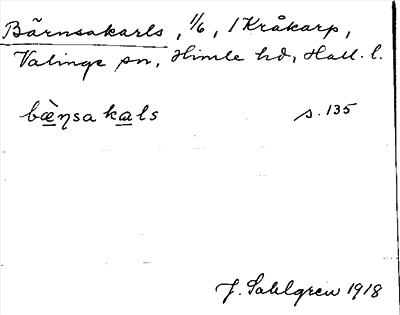 Bärnsakarls, 1/6, 1 Kråkarp,
Valinge sn, Himle hd, Hall. l.
bæ̀ŋsa kals s. 135
J. Sahlgren 1918